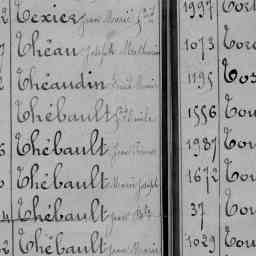 2 Texier Jean Marie 1997 Tor
7 Théau Joseph Mathurin 1073 Tor
2 Théaudin Marie 1195 Tos
Thébault 1556 Tou
5 Thébault Jean 1987 Tou
Thébault Marie Joseph 1672 Tou
4 Thébault Jean Bte 37 Tou
2 Thébault Jean Marie 1029 Tou